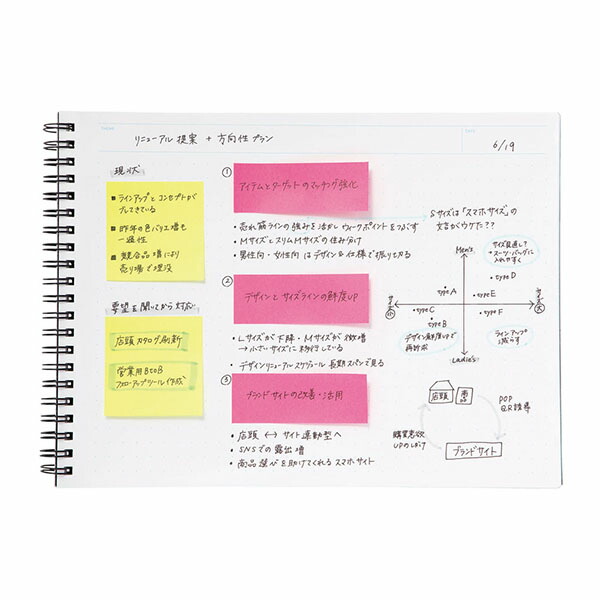 リニューアル提案 + 方向性プラン
6/19
現状
■ ラインアップとコンセプトが
ブレてきている
■ 昨年の色バリエ増も
一過性
■ 競合品増により
売り場で埋没
要望を聞いてから対応
店頭カタログ刷新
営業用BtoB
フォローアップツール作成
①
アイテムとターゲットのマッチング強化
• 売れ筋ラインの強みを活かしウィークポイントをつぶす
• MサイズとスリムMサイズの住み分け
• 男性向・女性向はデザインを仕様で振り切る
②
デザインとサイズラインの鮮度UP
• Lサイズが下降・Mサイズが微増
→小さいサイズに移行している
• デザインリニューアルスケジュール 長期スパンで見る
③
ブランドサイトの改善・活用
• 店頭 ↔ サイト連動型へ
• SNSでの露出増
• 商品選びを助けてくれるスマホサイト
Sサイズは「スマホサイズ」の
文言がウケた??
Men's
サイズ見直して
+スーツ・バッグに
入れやすく
•typeD
typeA
•typeE
サイズ小
サイズ大
•typeC
•typeF
typeB
デザイン鮮度UPで
再訴求
ラインアップ
減らす
Ladie's
店頭
商品
POP
QR誘導
購買意欲
UPのしかけ
ブランドサイト